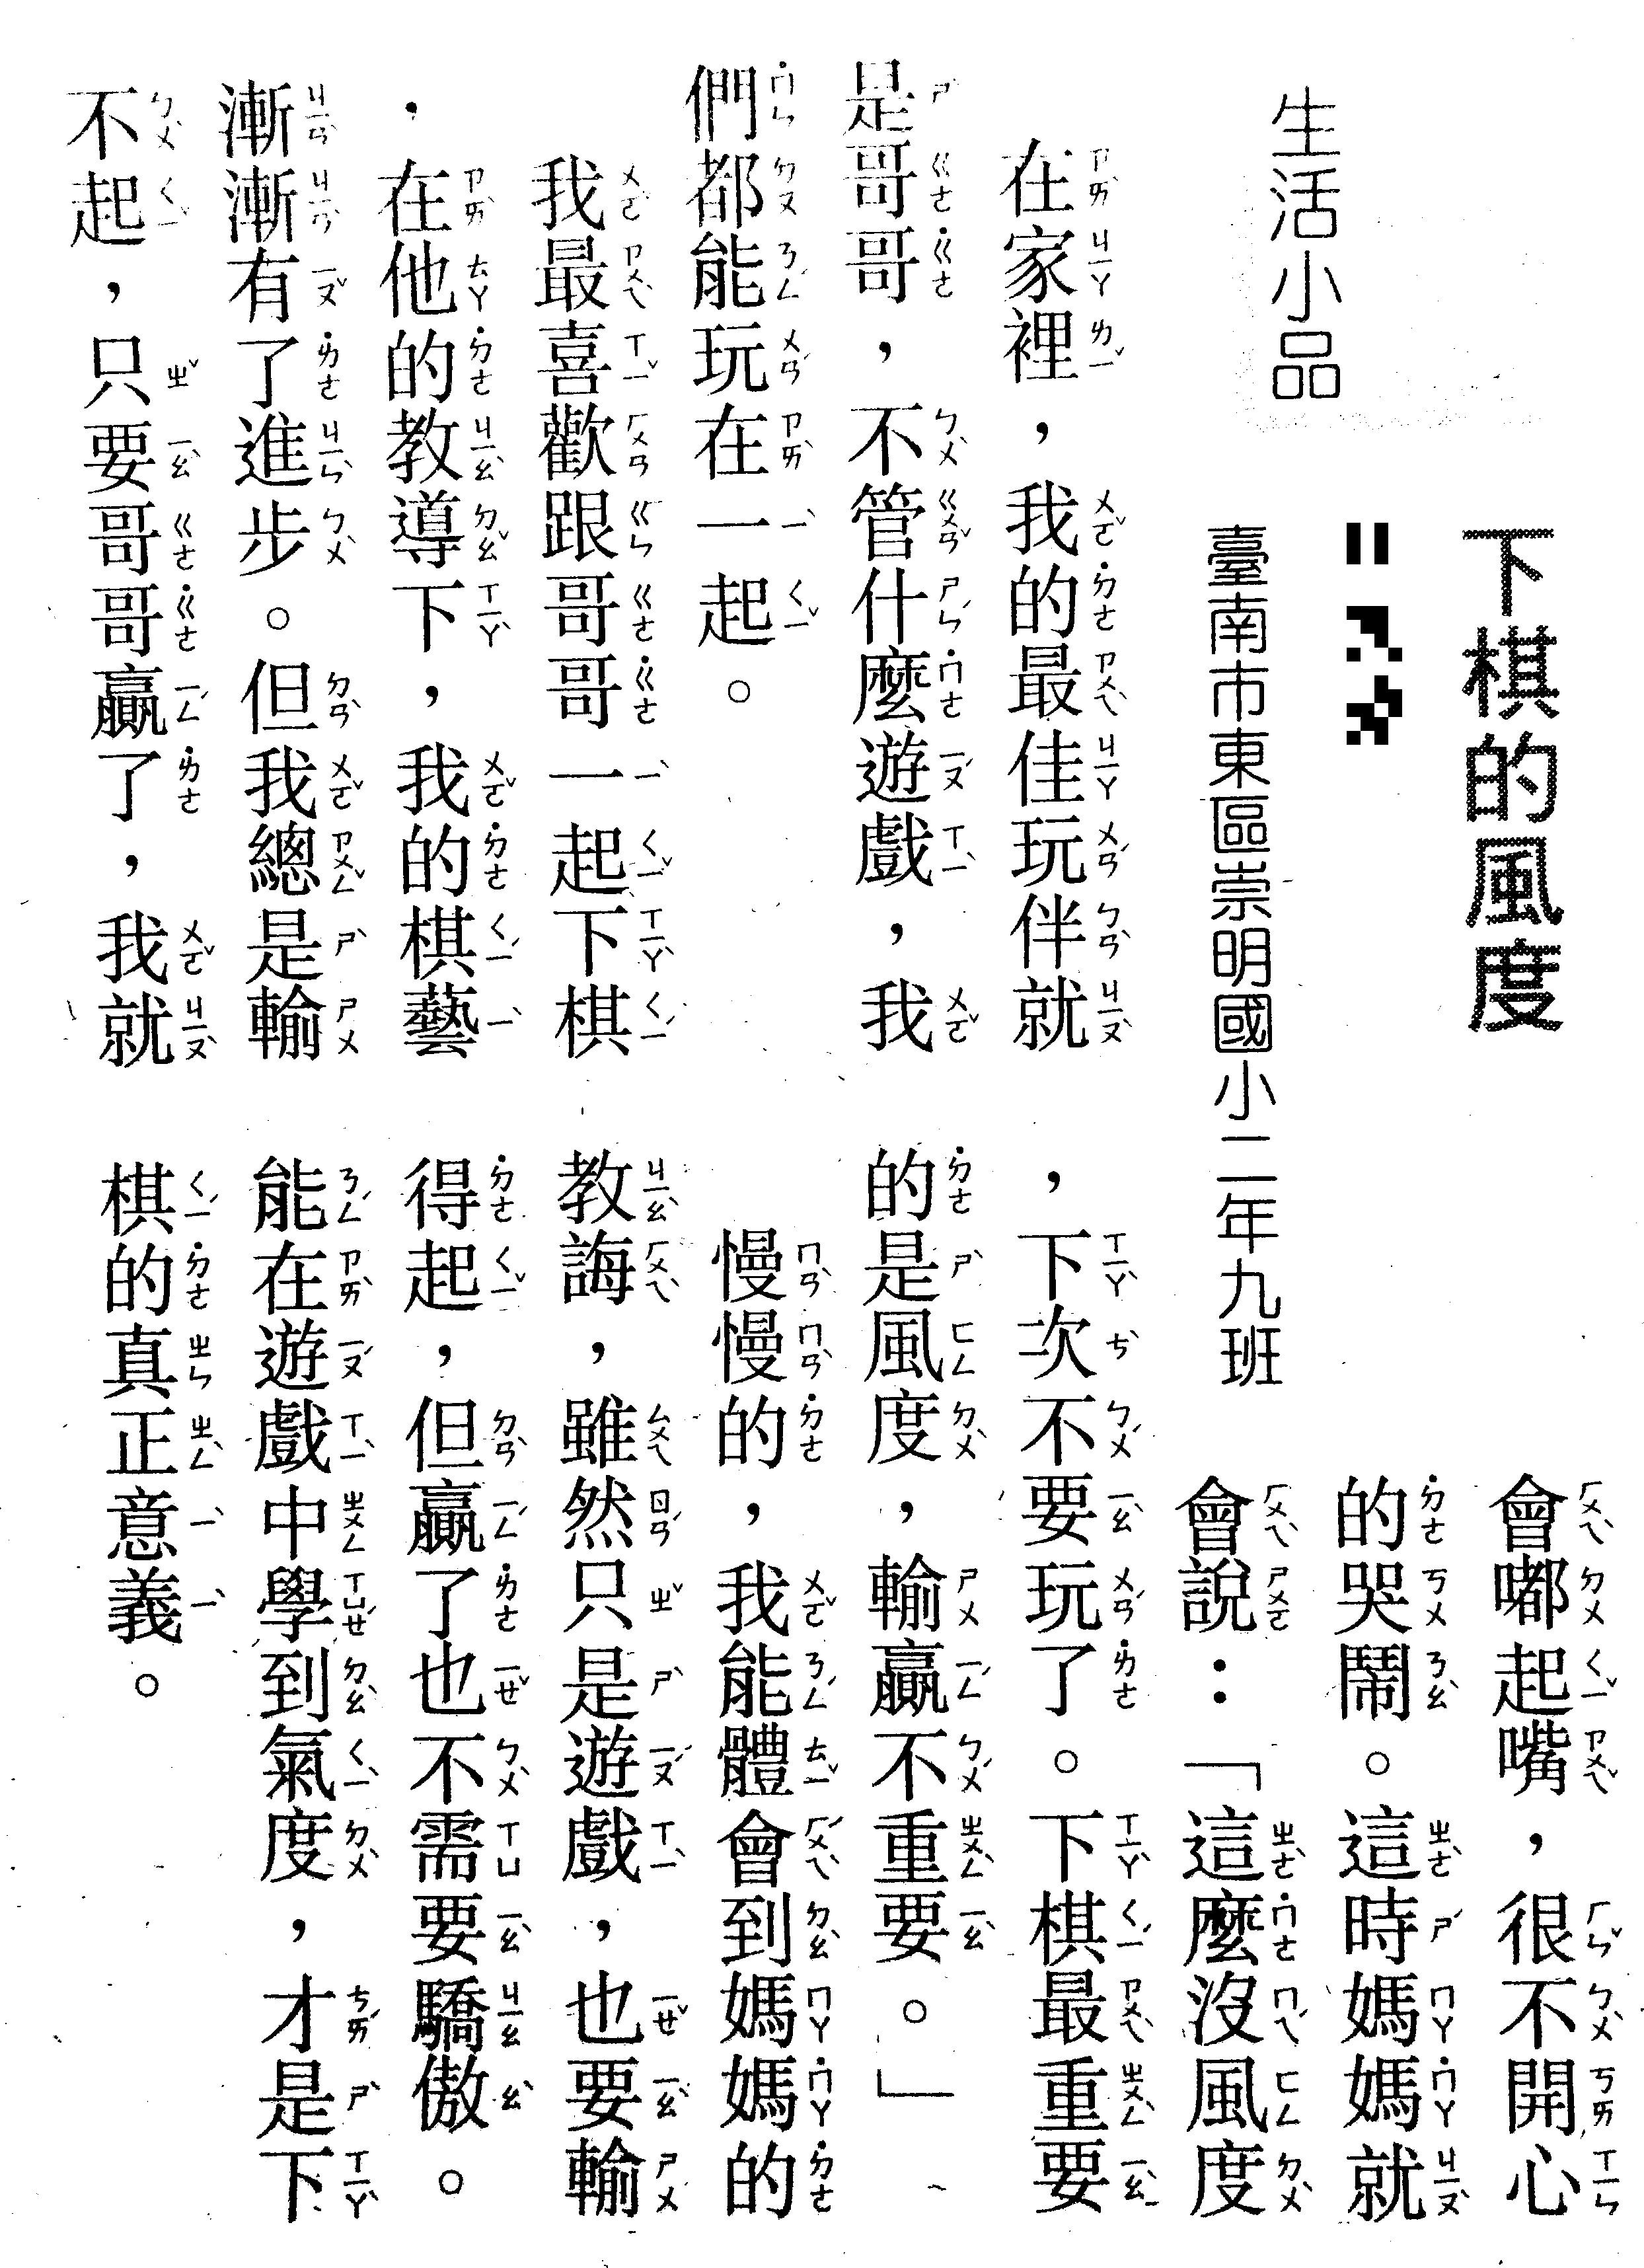 生活小品
下棋的風度
臺南市東區崇明國小二年九班
在家裡，我的最佳玩伴就
是哥哥，不管什麼遊戲，我
們都能玩在一起。
我最喜歡跟哥哥一起下棋
，在他的教導下，我的棋藝
漸漸有了進步。但我總是輸
不起，只要哥哥贏了，我就
會嘟起嘴，很不開心
的哭鬧。這時媽媽就
會說：「這麼沒風度
，下次不要玩了。下棋最重要
的是風度，輸贏不重要。」
慢慢的，我能體會到媽媽的
教誨，雖然只是遊戲，也要輸
得起，但贏了也不需要驕傲。
能在遊戲中學到氣度，才是下
棋的真正意義。